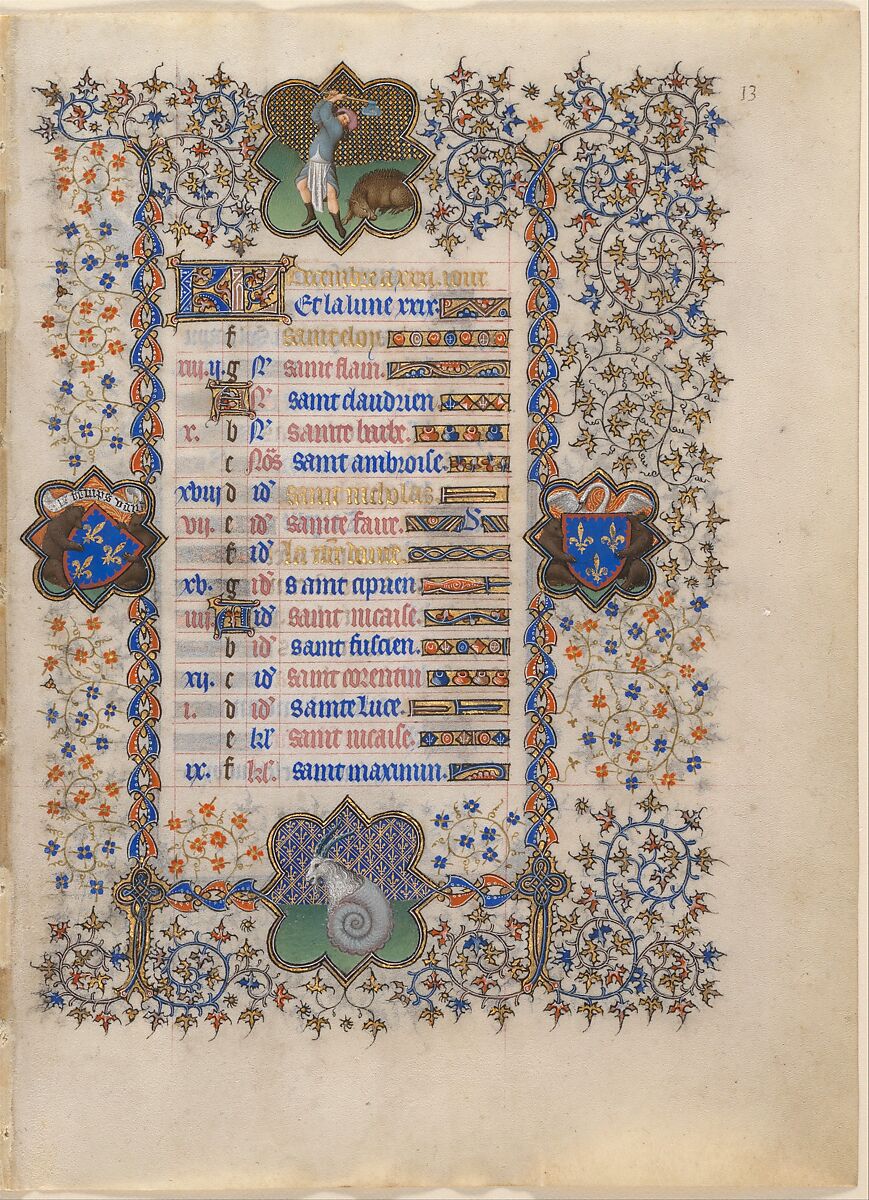 13
Decembre a xxxi. iour
Et la lune xxix.
f saint eloy
xiii. ii. g N saint flain.
A N saint claudrien
x. b N sainte barbe.
c Nos saint ambroise.
xviii d id saint nicholas.
vii. e id sainte faire.
le temps
f id la n're dame.
xv. g id saint ciprien.
iiii. A id saint nicaise.
b id saint fuscien.
xii. c id saint corentin
i. d id sainte luce.
e kl saint nicaise.
ix. f kl. saint maximin.